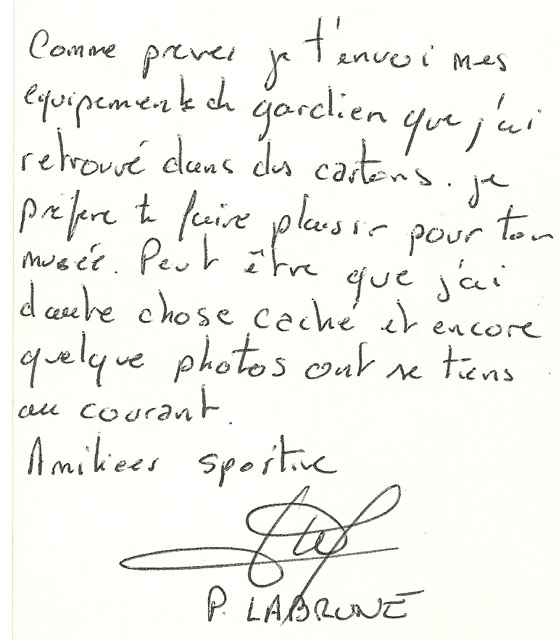 Comme prevei je t'envoi mes
equipements de gardien que j'ai
retrouvé dans des cartons. je
préfère te faire plaisir pour ton
musée. Peut être que j'ai
dautre chose caché et encore
quelque photos ont se tiens
au courant.
Amitiees sportive
P. LABRUNE